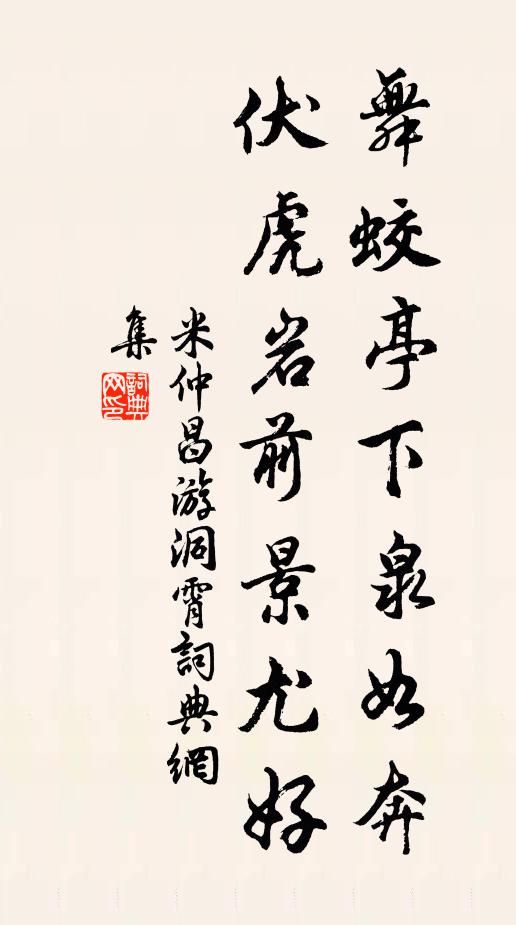 舞蛟亭下泉如奔
伏虎岩前景尤好
米仲昌游洞霄詞典網
集
詞典
网印